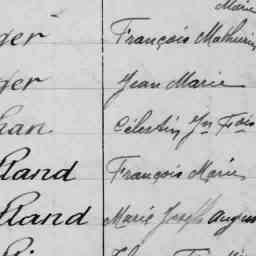 Marie
ger François Mathurin
ger Jean Marie
han Célestin Jn Fois
Rland François Marie
Rland Marie Joseph Augus